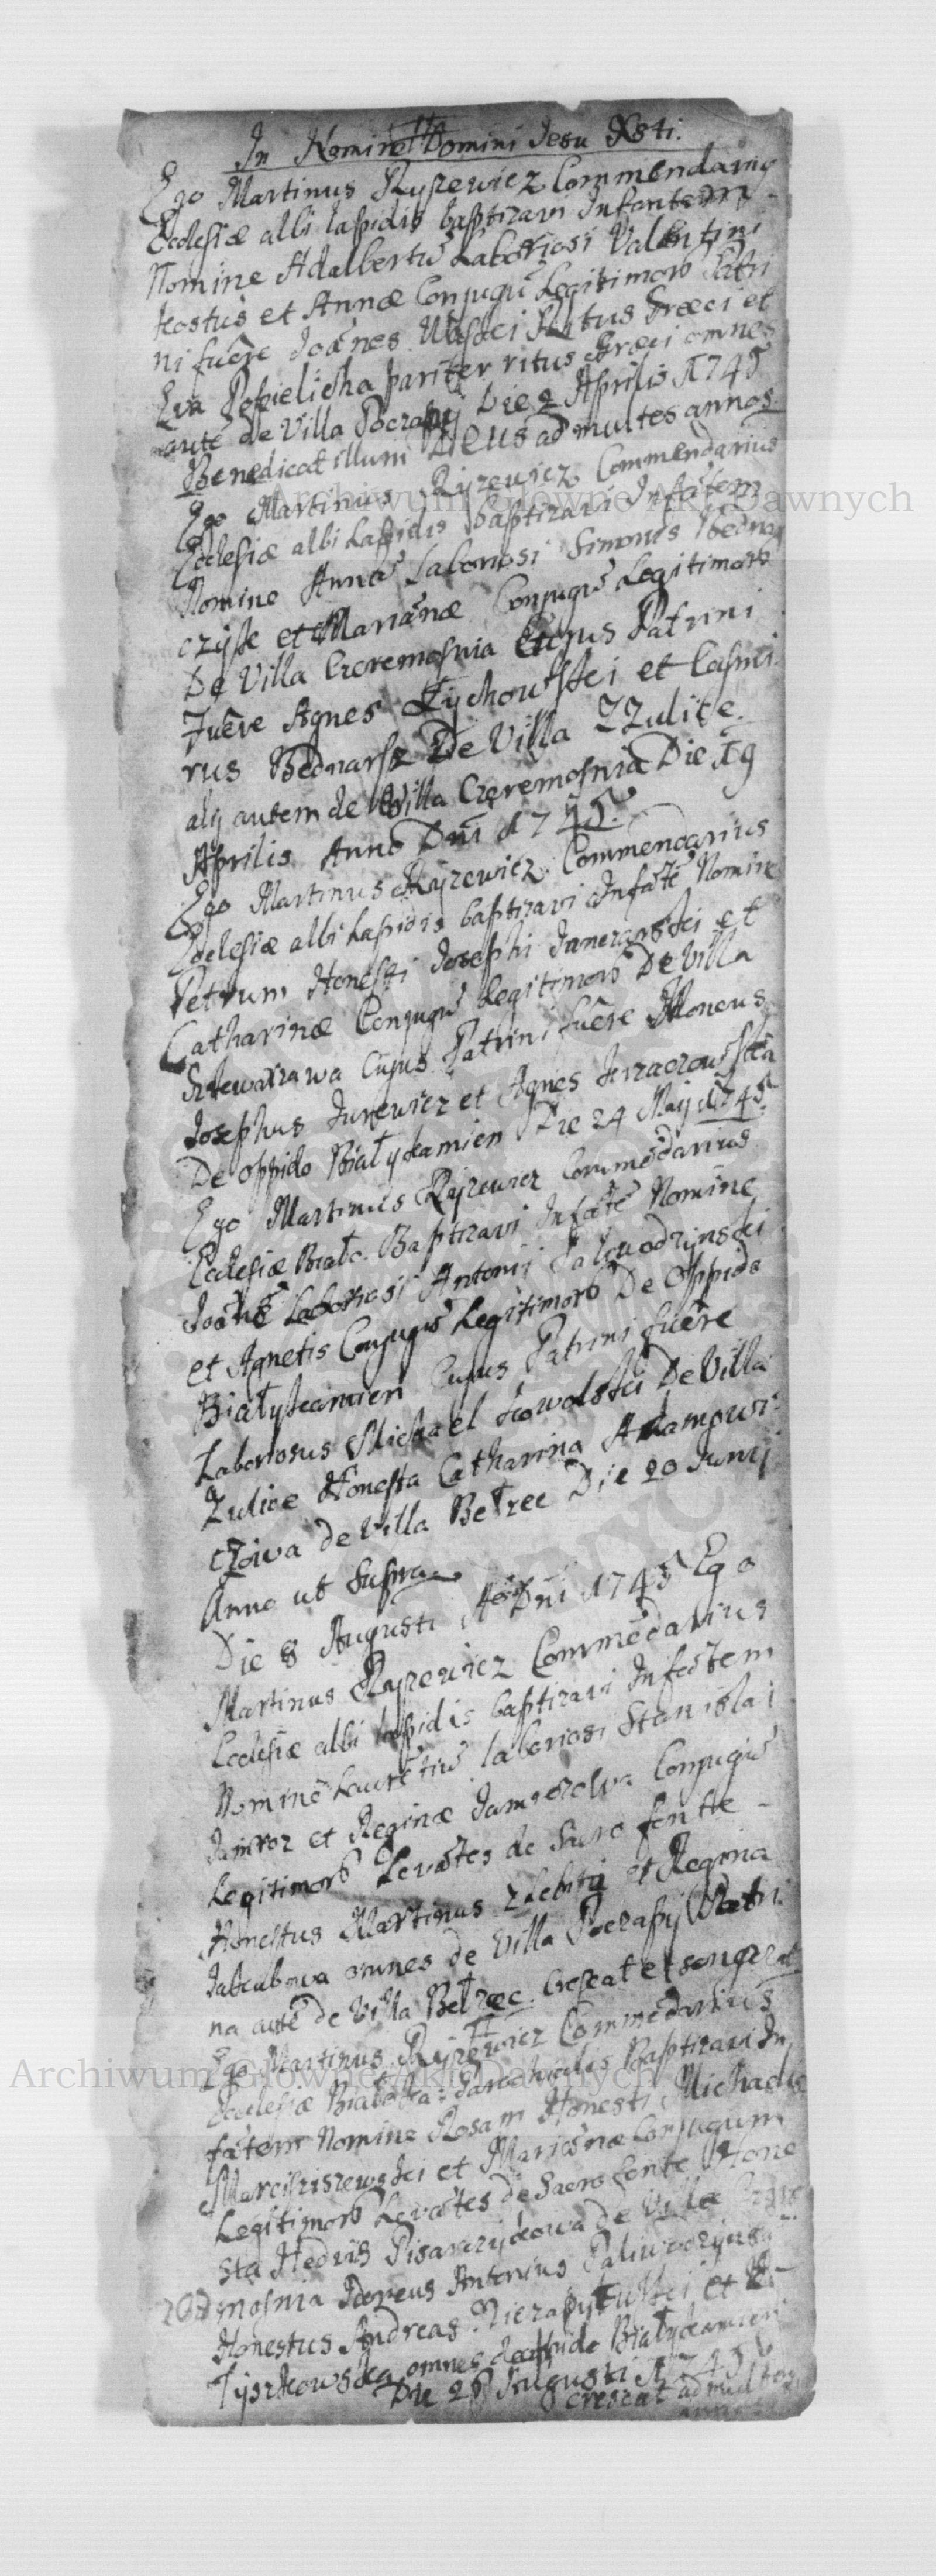 In Nomine Domini Jesu Xsti.
Ego Martinus Ryzewicz Commendarius
Ecclesiæ albi Lapidis baptizavi Infantem
Nomine Adalbertũ Laboriosi Valentini
Kostus et Annæ Conjugũ Legitimorũ Patri
ni fuêre Joãnes Ritus Græci et
Eva Popielicha pariter ritus Græci omnes
autẽ de Villa Poczapy Die 2 Aprilis A 1745
Benedicat illum Deus ad multos annos.
Ego Martinus Ryzewicz Commendarius
Ecclesiæ albi Lapidis baptizavi Infãtem
Nomine Annã Laboriosi Simonis Bedna
et Mariãnæ Conjugũ Legitimorũ
De Villa Czeremosnia Cujus Patrini
Fuêre Agnes Tychowskei et Casmi
rus Bednarsz De Villa Zzulice
alij autem de Villa Czeremosnia Die 19
Aprilis Anno Dni 1745.
Ego Martinus Ryzewicz Commendarius
Ecclesiæ albi Lapidis baptizavi Infãtẽ Nomine
Petrum Honesti Josephi et
Catharinæ Conjugũ Legitimorũ De Villa
Cujus Patrini fuêre Idoneus
Josephus Jurewicz et Agnes
De Oppido Białykamien Die 24 Maij A 1745.
Ego Martinus Ryzewicz Commẽdarius
Ecclesiæ Biało. Baptizavi Infãtẽ Nomine
Joãnẽ Laboriosi Antonij Paliwodzinski
et Agnetis Conjugũ Legitimorũ De Oppido
Białykamien Cujus Patrini fuêre
Laboriosus Michael Kowalski De Villa
Zulice Honesta Catharina Adamowi
czowa de Villa Bełzec Die 20 Junij
Anno ut Supra
Die 8 Augusti A Dni 1745 Ego
Martinus Ryzewicz Commẽdarius
Ecclesiæ albi Lapidis baptizavi Infãtem
Nomine Laurẽtiũ laboriosi Stanislai
et Reginæ Conjugũ
Legitimorũ Levãtes de Sacro fonte
Honestus Martinus et Regina
Jakubowa omnes de Villa Poczapy Patri
na autẽ de Villa Bełzec. Crescat et
Ego Martinus Ryzewicz Commẽdarius
Ecclesiæ Parochialis Baptizavi In
fãtem Nomine Rosam Honesti Michaelis
et Mariãnæ Conjugum
Legitimorũ Levãtes de Sacro fonte Hone
sta Hedvis Pisarczykowa de Villa
mosnia Idoneus Antonius Paliwodzinski
Honestus Andreas et
Tyszkowska omnes de oppido Białykamien
Die 28 Augusti A 1745
Crescat ad multos